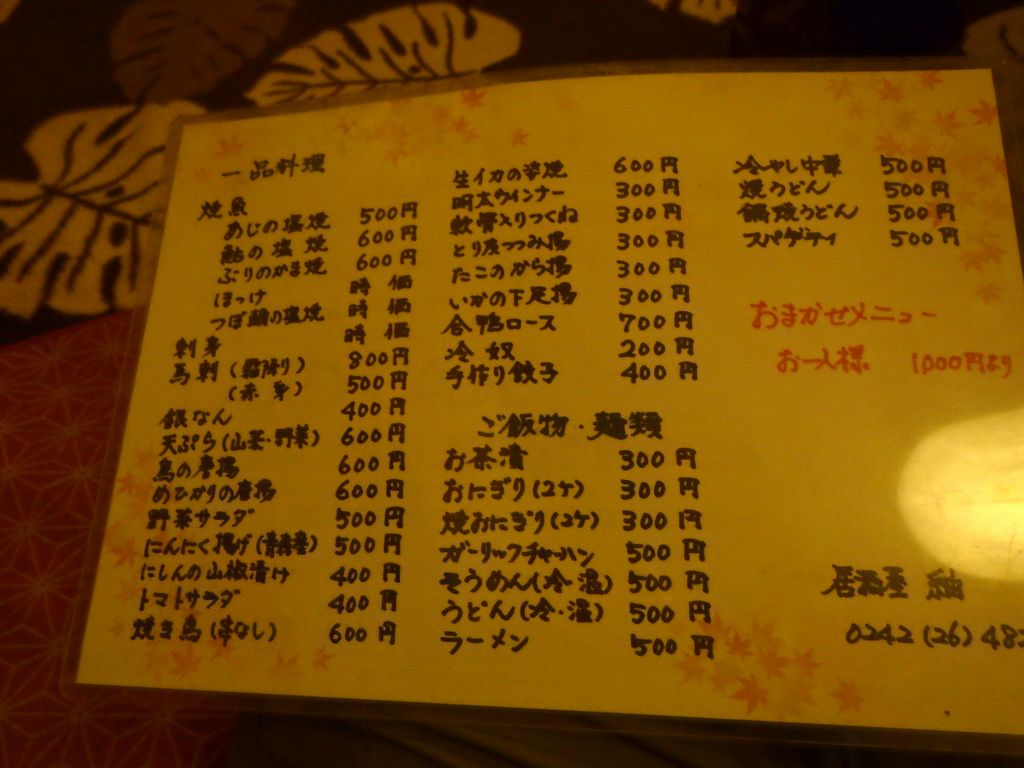 一品料理
焼魚
あじの塩焼 500円
鮎の塩焼 600円
ぶりのかま焼 600円
ほっけ 時価
つぼ鯛の塩焼 時価
刺身 時価
馬刺(霜降り) 800円
(赤身) 500円
銀なん 400円
天ぷら(山菜・野菜) 600円
鳥の唐揚 600円
めひかりの唐揚 600円
野菜サラダ 500円
にんにく揚げ(青森産) 500円
にしんの山椒漬け 400円
トマトサラダ 400円
焼き鳥(串なし) 600円
生イカの姿焼 600円
明太ウインナー 300円
軟骨入りつくね 300円
とり皮つつみ揚 300円
たこのから揚 300円
いかの下足揚 300円
合鴨ロース 700円
冷奴 200円
手作り餃子 400円
ご飯物・麺類
お茶漬 300円
おにぎり(2ケ) 300円
焼おにぎり(2ケ) 300円
ガーリックチャーハン 500円
そうめん(冷・温) 500円
うどん(冷・温) 500円
ラーメン 500円
冷やし中華 500円
焼うどん 500円
鍋焼うどん 500円
スパゲティ 500円
おまかせメニュー
お一人様 1,000円より
居酒屋 紬
0242(26)48